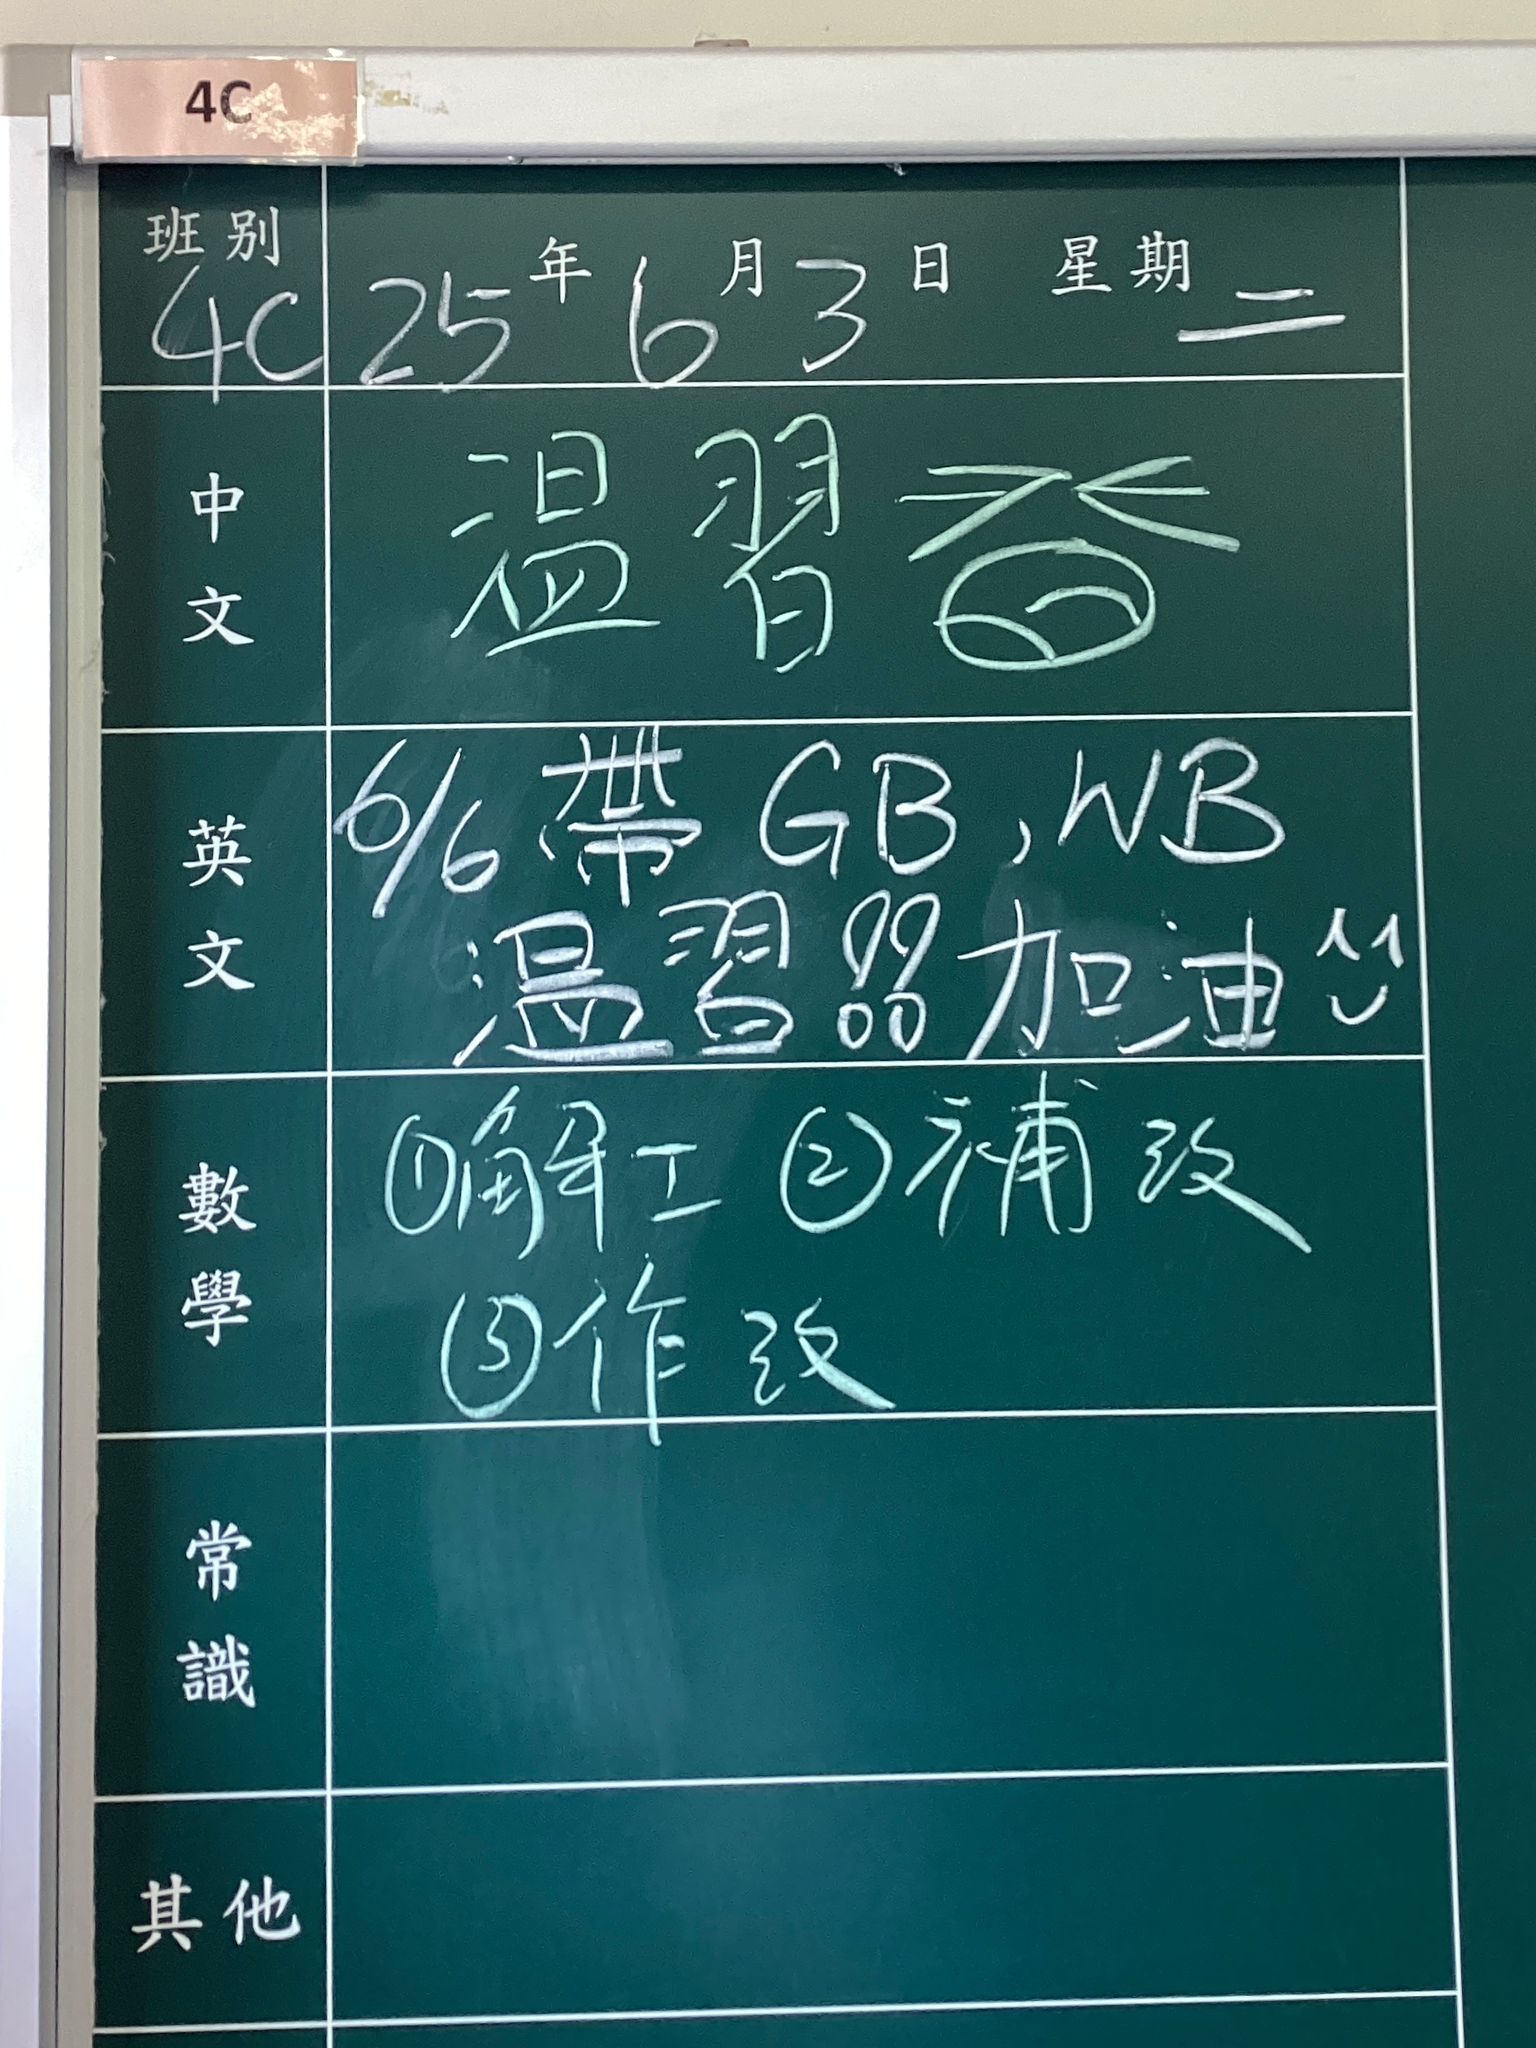 4C
班別 年 月 日 星期
4C 25 6 3 二
中文 温習
英文 6/6 帶 GB, WB
温習!!加油
數學 ①解工 ②補改
③作改
常識
其他